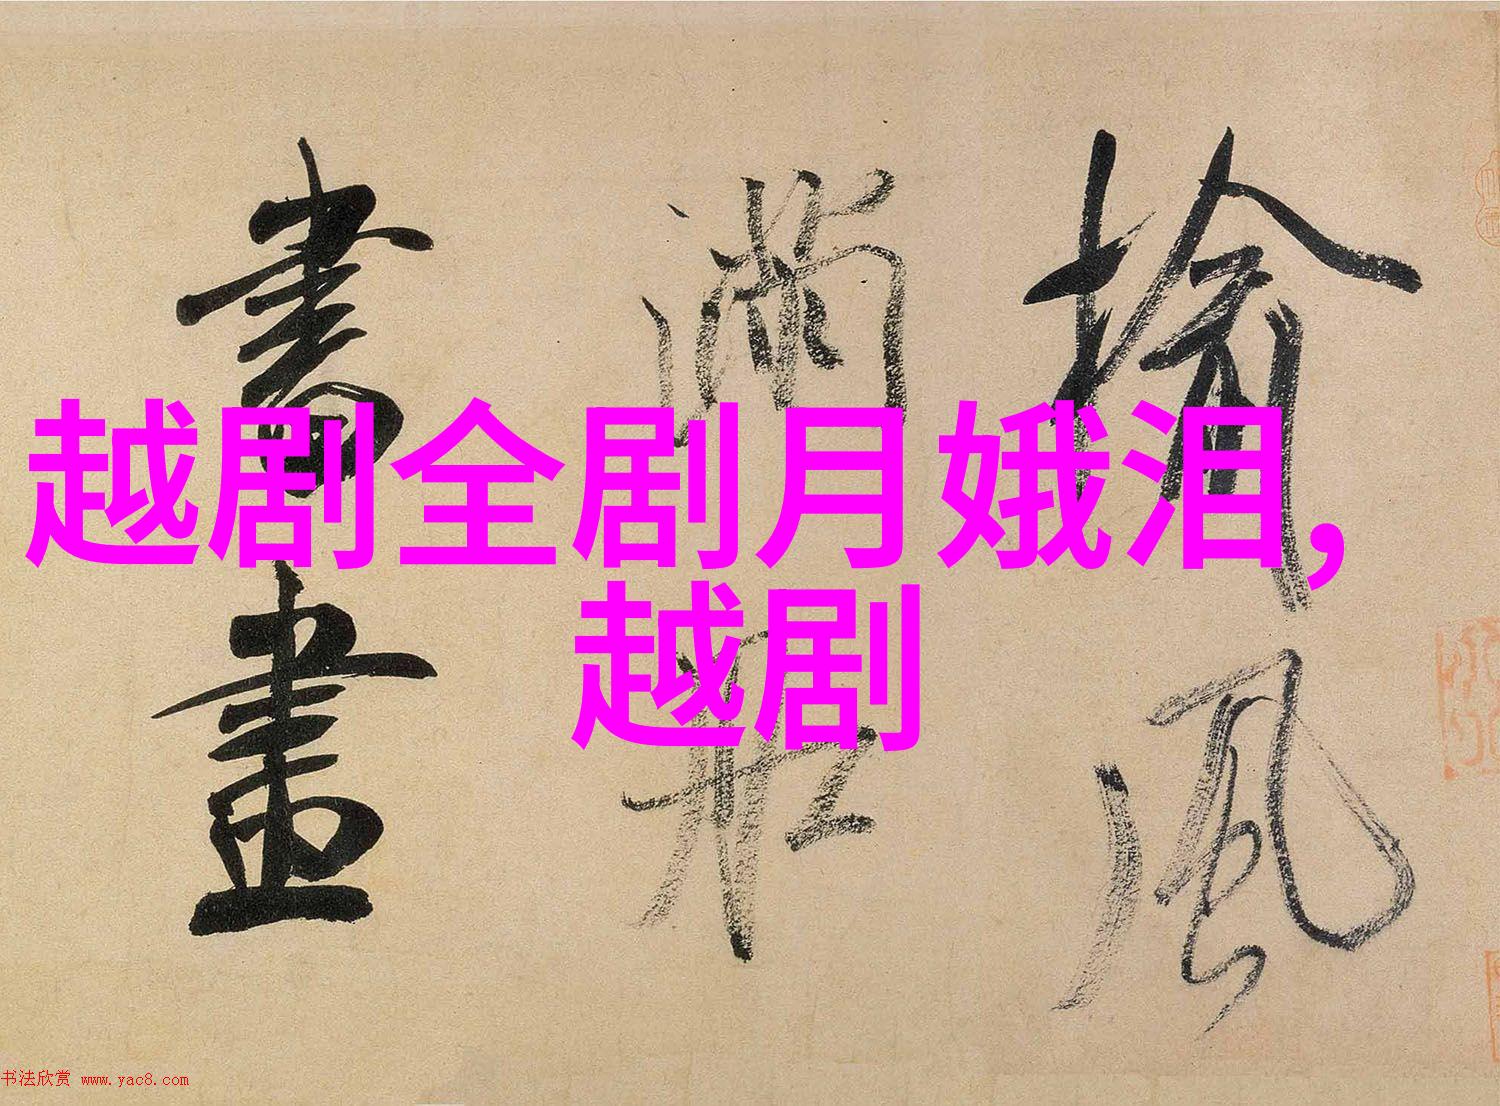 榆風
滿船
書畫
越剧全剧月娥泪,
越剧
书法欣赏 www.yac8.com